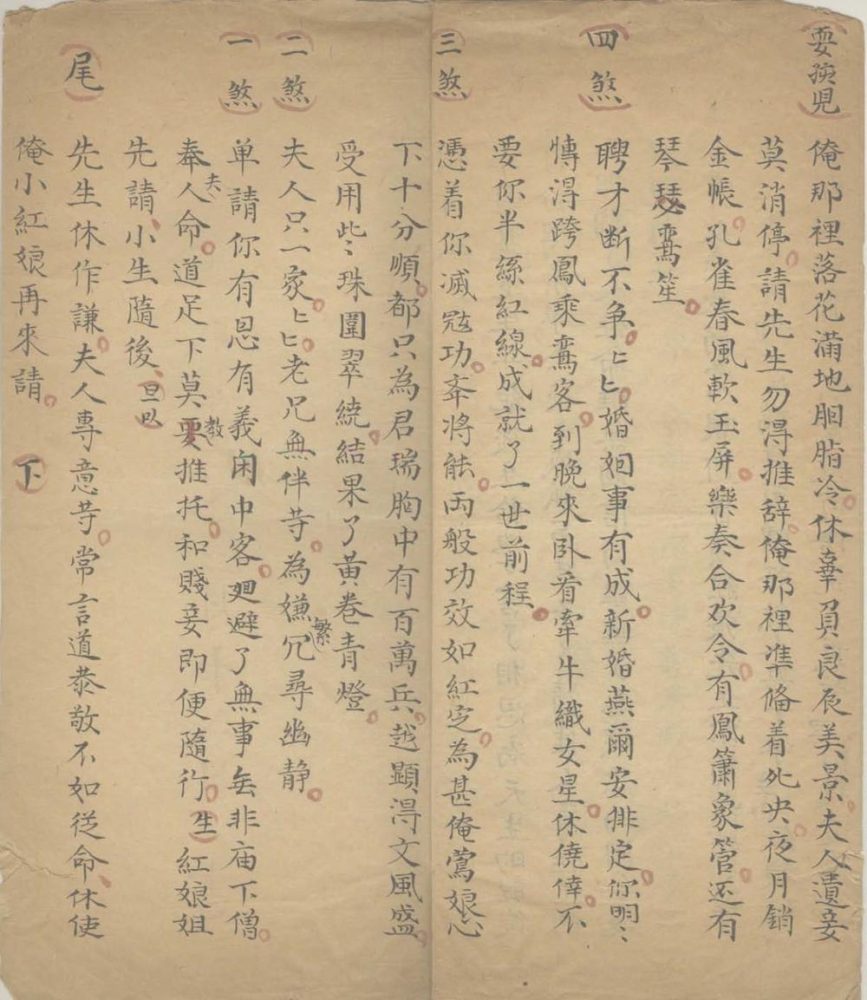 耍孩兒
俺那裡落花滿地胭脂冷休辜負良辰美景夫人遣妾
莫消停請先生勿得推辞俺那裡準俻着死央夜月銷
金帳孔雀春風軟玉屏樂奏合欢令有鳳簫象管还有
琴瑟鸞笙
四煞
聘才断不争匕匕婚姻事有成新婚燕爾安排定你明〻
慱得跨鳳乘鸞客到晚來卧看牽牛織女星休僥倖不
要你半絲紅線成就了一世前程
三煞
憑着你滅寇功斉將能両般功效如紅定為甚俺鶯娘心
下十分順都只為君瑞胸中有百萬兵越顕得文風盛
受用些〻珠圍翠繞結果了黄卷青燈
二煞
夫人只一家匕匕老兄無伴等為嫌冗繁尋幽静
一煞
单請你有恩有義闲中客廻避了無事無非庙下僧
奉夫人命道足下莫要教推托和賤妾即便隨行生紅娘姐
先請小生隨後旦叹
尾
先生休作謙夫人專意等常言道恭敬不如從命休使
俺小紅娘再來請 下